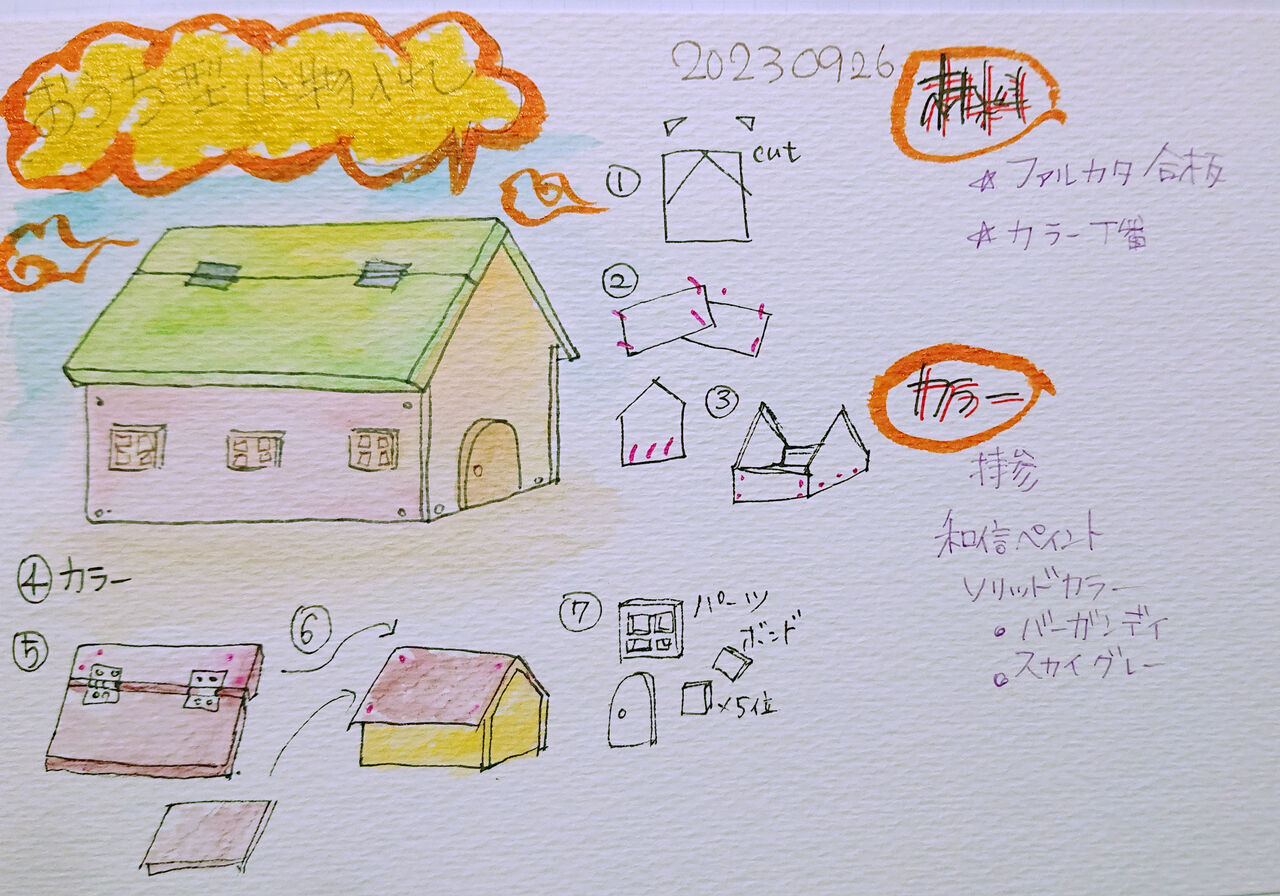 おうち型小物入れ
20230926
cut
①
②
③
④カラー
⑤
⑥
⑦
パーツ
ボンド
×5位
材料
☆ファルカタ合板
☆カラー丁番
カラー
持参
和信ペイント
ソリッドカラー
•バーガンディ
•スカイグレー